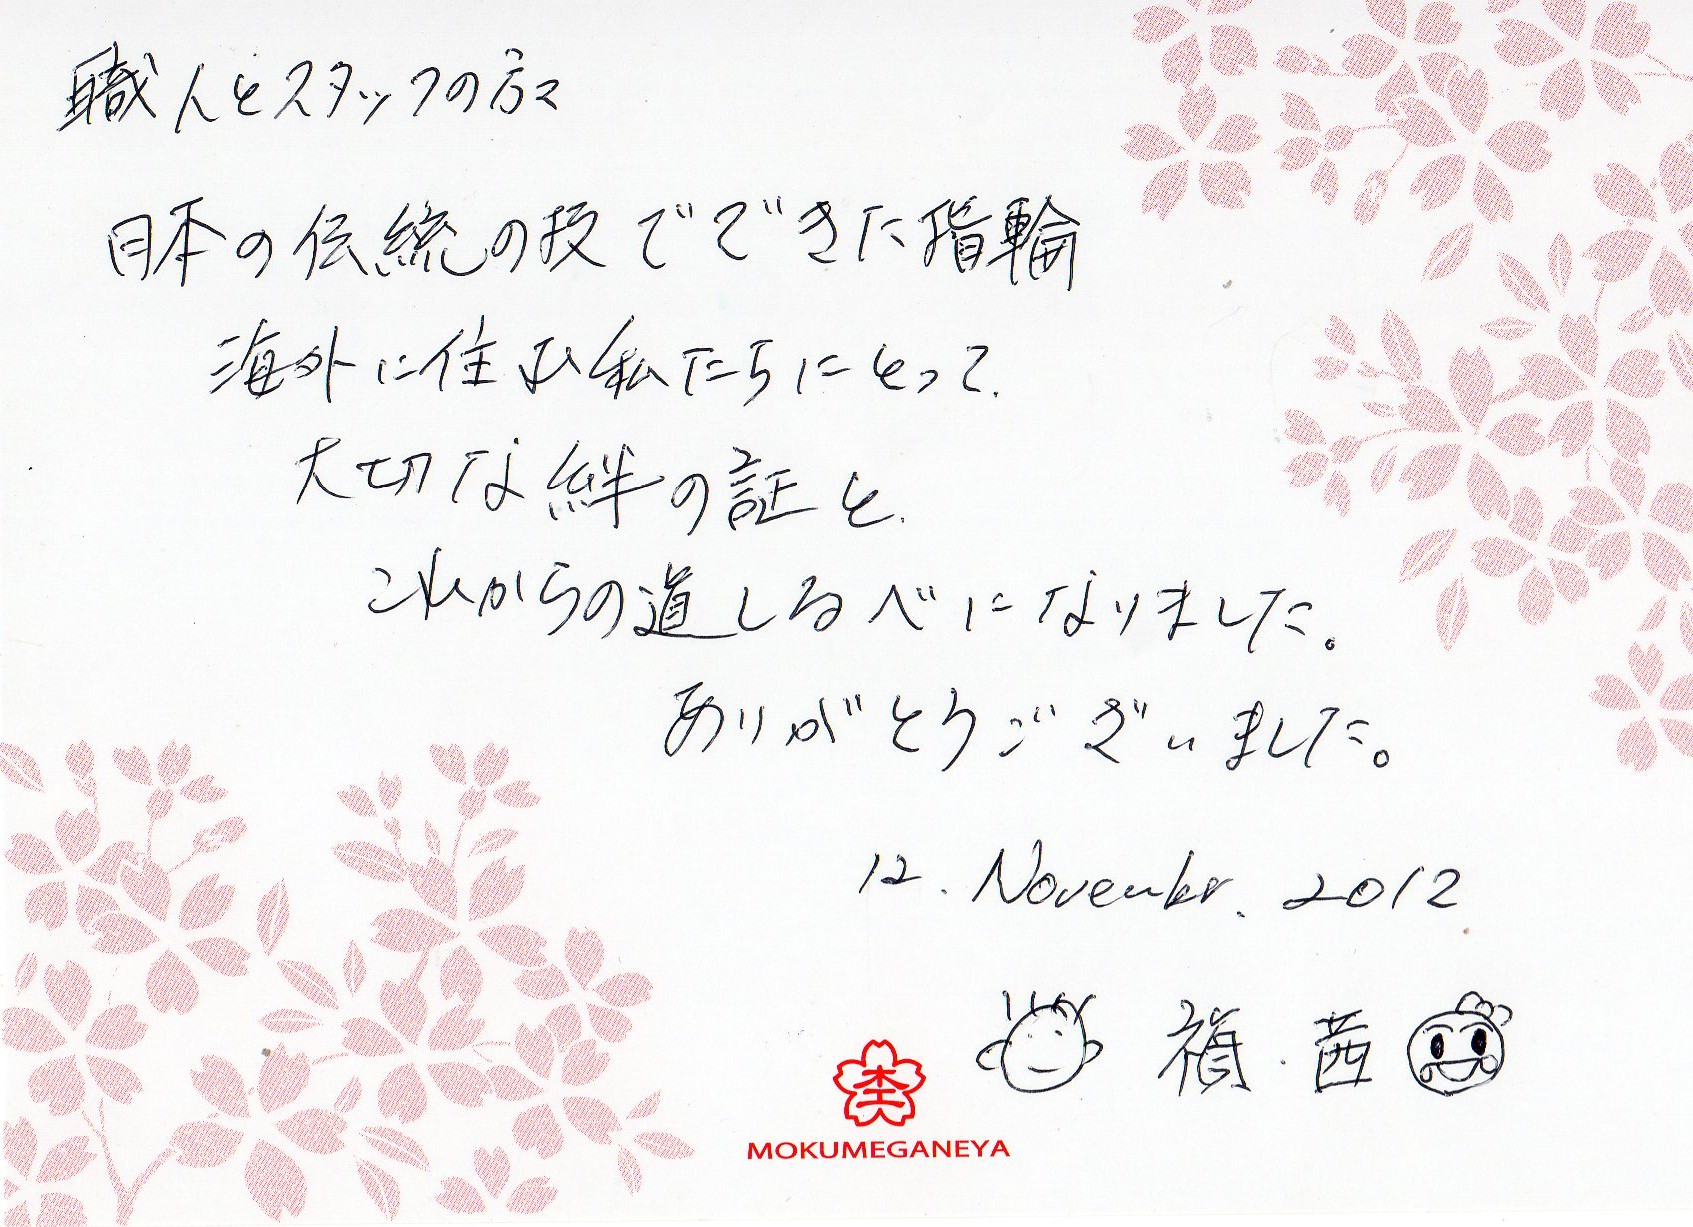 職人とスタッフの方々
日本の伝統の技でできた指輪
海外に住む私たちにとって、
大切な絆の証と、
これからの道しるべになりました。
ありがとうございました。
12. November. 2012
禎・茜
杢
MOKUMEGANEYA